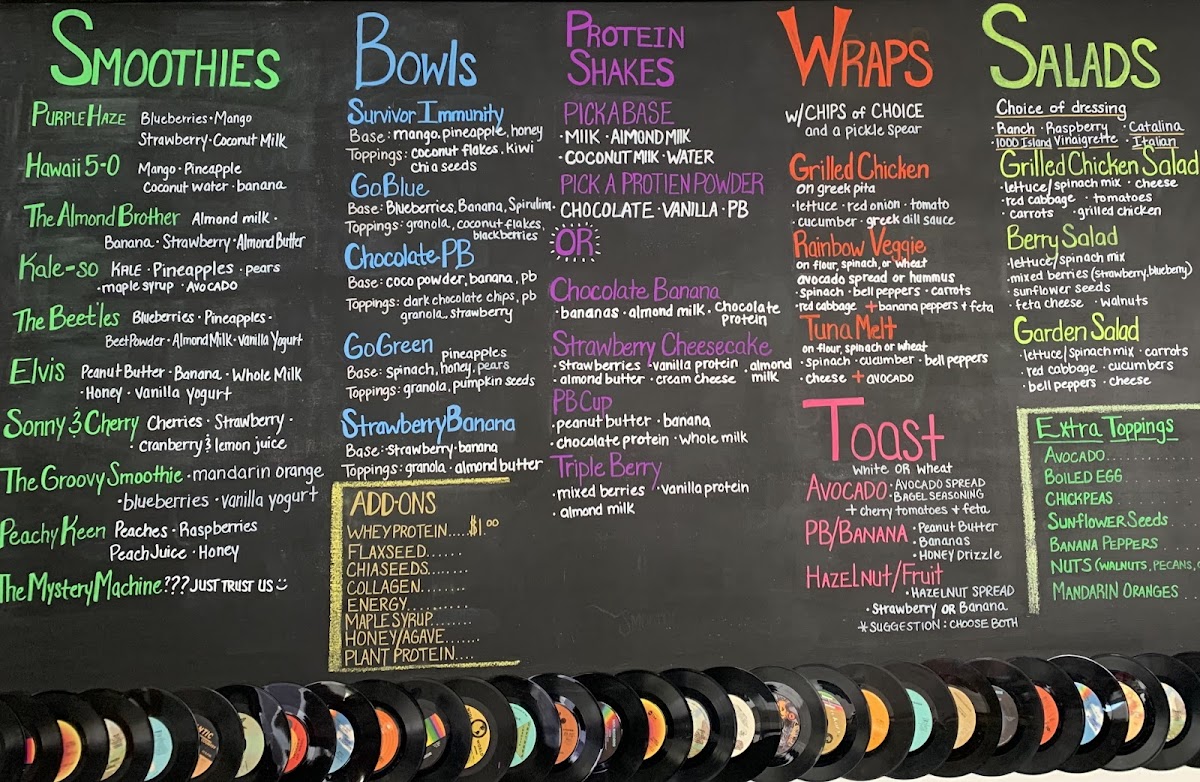 SMOOTHIES
PURPLE HAZE Blueberries · Mango
Strawberry · Coconut Milk
Hawaii 5-0 Mango · Pineapple
Coconut water · banana
The Almond Brother Almond milk ·
Banana · Strawberry · Almond Butter
Kale-so KALE · Pineapples · pears
· maple syrup · AVOCADO
The Beetles Blueberries · Pineapples ·
Beet Powder · Almond Milk · Vanilla Yogurt
Elvis Peanut Butter · Banana · Whole Milk
· Honey · vanilla yogurt
Sonny & Cherry Cherries · Strawberry ·
Cranberry & lemon juice
The Groovy Smoothie · mandarin orange
· blueberries · vanilla yogurt
Peachy Keen Peaches · Raspberries
Peach Juice · Honey
The Mystery Machine??? JUST TRUST US
Bowls
Survivor Immunity
Base: mango, pineapple, honey
Toppings: coconut flakes, kiwi
chia seeds
Go Blue
Base: Blueberries, Banana, Spirulina
Toppings: granola, coconut flakes,
blackberries
Chocolate PB
Base: coco powder, banana, pb
Toppings: dark chocolate chips, pb
granola, strawberry
Go Green
pineapples
Base: spinach, honey, pears
Toppings: granola, pumpkin seeds
Strawberry Banana
Base: strawberry · banana
Toppings: granola · almond butter
ADD-ONS
WHEY PROTEIN....$1.00
FLAXSEED......
CHIASEEDS.......
COLLAGEN........
ENERGY..........
MAPLE SYRUP.......
HONEY/AGAVE.......
PLANT PROTEIN....
PROTEIN
SHAKES
PICK A BASE
· MILK · ALMOND MILK
· COCONUT MILK · WATER
PICK A PROTIEN POWDER
· CHOCOLATE · VANILLA · PB
OR
Chocolate Banana
· bananas · almond milk · chocolate
protein
Strawberry Cheesecake
· strawberries · vanilla protein · almond
· almond butter · cream cheese milk
PB Cup
· peanut butter · banana
· chocolate protein · whole milk
Triple Berry
· mixed berries · vanilla protein
· almond milk
WRAPS
w/CHIPS of CHOICE
and a pickle spear
Grilled Chicken
on greek pita
· lettuce · red onion · tomato
· cucumber · greek dill sauce
Rainbow Veggie
on flour, spinach, or wheat
avocado spread or hummus
· spinach · bell peppers · carrots
· red cabbage + banana peppers + feta
Tuna Melt
on flour, spinach or wheat
· spinach · cucumber · bell peppers
· cheese + avocado
Toast
white OR wheat
AVOCADO · AVOCADO SPREAD
· BAGEL SEASONING
+ cherry tomatoes + feta
PB/BANANA · Peanut Butter
· Bananas
· HONEY Drizzle
HAZELNUT/FRUIT
· HAZELNUT SPREAD
· Strawberry OR Banana
*SUGGESTION: CHOOSE BOTH
SALADS
Choice of dressing
· Ranch · Raspberry · Catalina
· 1000 Island Vinaigrette · Italian
Grilled Chicken Salad
· lettuce/spinach mix · cheese
· red cabbage · tomatoes
· carrots · grilled chicken
Berry Salad
· lettuce/spinach mix
· mixed berries (strawberry, blueberry)
· sunflower seeds
· feta cheese · walnuts
Garden Salad
· lettuce/spinach mix · carrots
· red cabbage · cucumbers
· bell peppers · cheese
Extra Toppings
AVOCADO............
BOILED EGG.......
CHICKPEAS.......
SUNFLOWER SEEDS...
BANANA PEPPERS....
NUTS (WALNUTS, PECANS,
MANDARIN ORANGES...